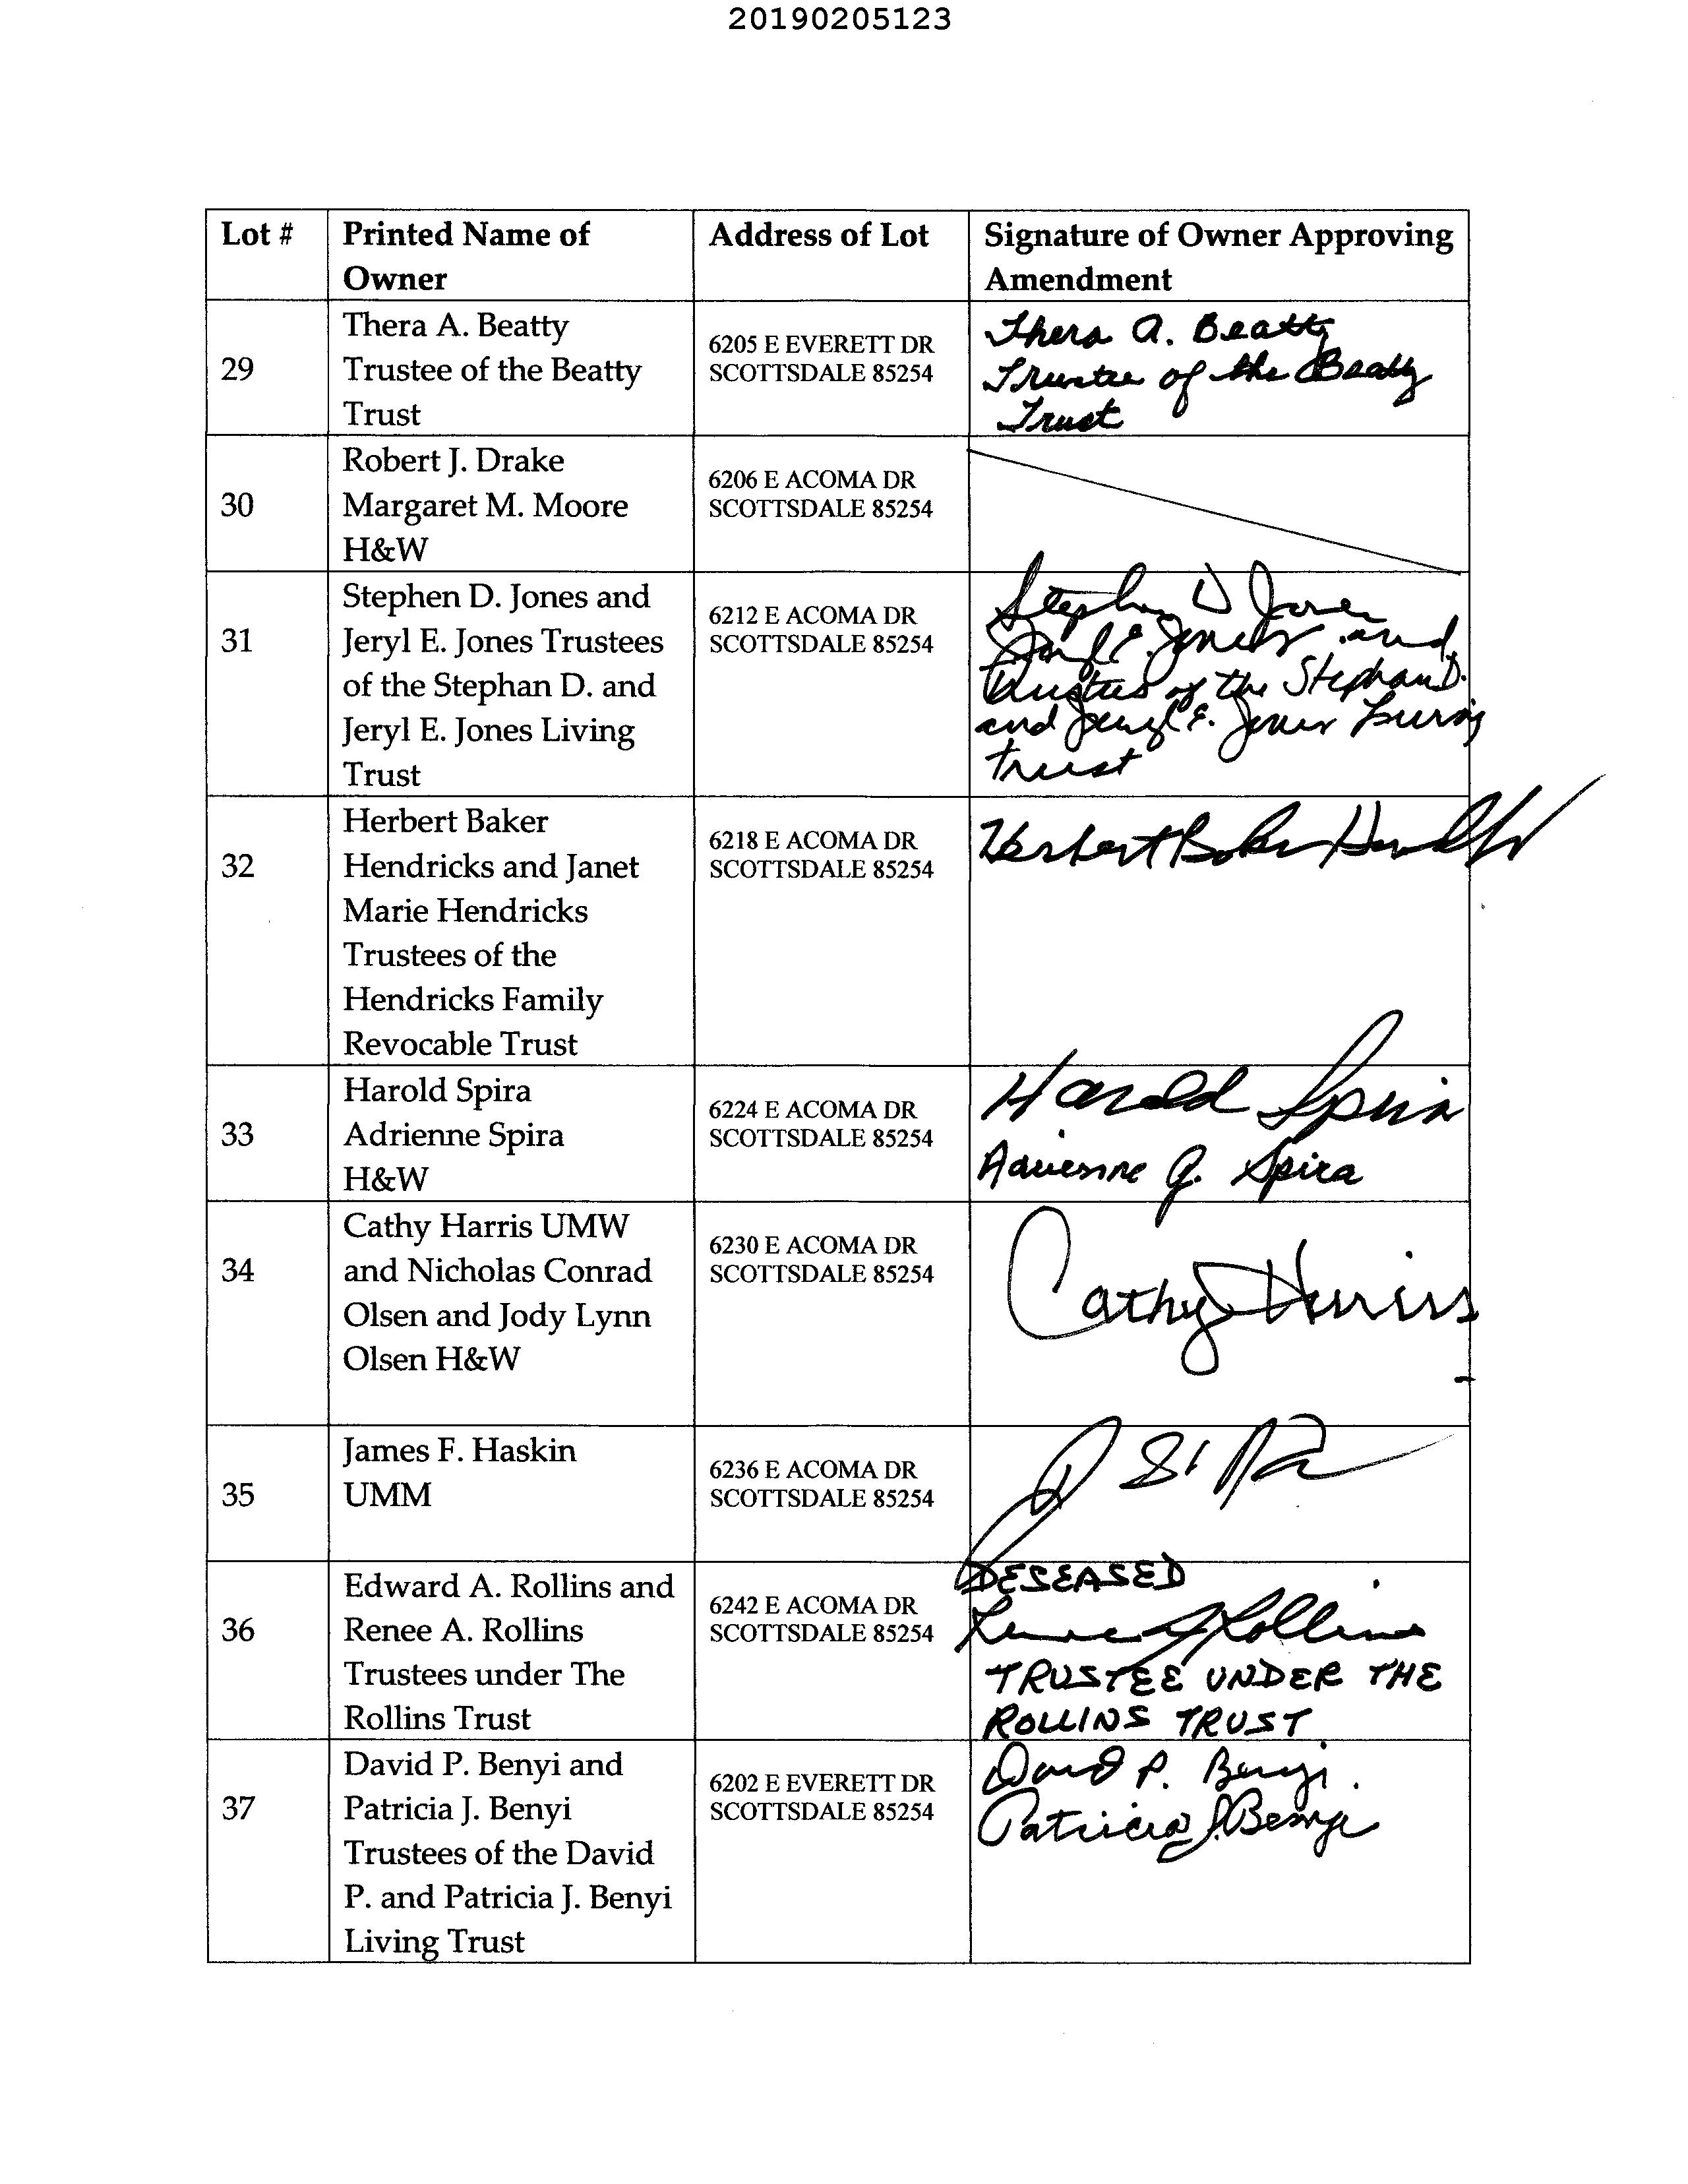 20190205123
Lot #
Printed Name of
Owner
Address of Lot
Signature of Owner Approving
Amendment
29
Thera A. Beatty
Trustee of the Beatty
Trust
6205 E EVERETT DR
SCOTTSDALE 85254
Thera A. Beatty
Trustee of the Beatty
Trust
30
Robert J. Drake
Margaret M. Moore
H&W
6206 E ACOMA DR
SCOTTSDALE 85254
31
Stephen D. Jones and
Jeryl E. Jones Trustees
of the Stephan D. and
Jeryl E. Jones Living
Trust
6212 E ACOMA DR
SCOTTSDALE 85254
Stephen D Jones
Jeryl E. Jones and
Trustees of the Stephan D.
and Jeryl E. Jones Living
trust
32
Herbert Baker
Hendricks and Janet
Marie Hendricks
Trustees of the
Hendricks Family
Revocable Trust
6218 E ACOMA DR
SCOTTSDALE 85254
Herbert Baker
33
Harold Spira
Adrienne Spira
H&W
6224 E ACOMA DR
SCOTTSDALE 85254
Harold Spira
Adrienne J. Spira
34
Cathy Harris UMW
and Nicholas Conrad
Olsen and Jody Lynn
Olsen H&W
6230 E ACOMA DR
SCOTTSDALE 85254
Cathy Harris
35
James F. Haskin
UMM
6236 E ACOMA DR
SCOTTSDALE 85254
36
Edward A. Rollins and
Renee A. Rollins
Trustees under The
Rollins Trust
6242 E ACOMA DR
SCOTTSDALE 85254
DESEASED
Renee A Rollins
TRUSTEE UNDER THE
ROLLINS TRUST
37
David P. Benyi and
Patricia J. Benyi
Trustees of the David
P. and Patricia J. Benyi
Living Trust
6202 E EVERETT DR
SCOTTSDALE 85254
David P. Benyi
Patricia J. Benyi